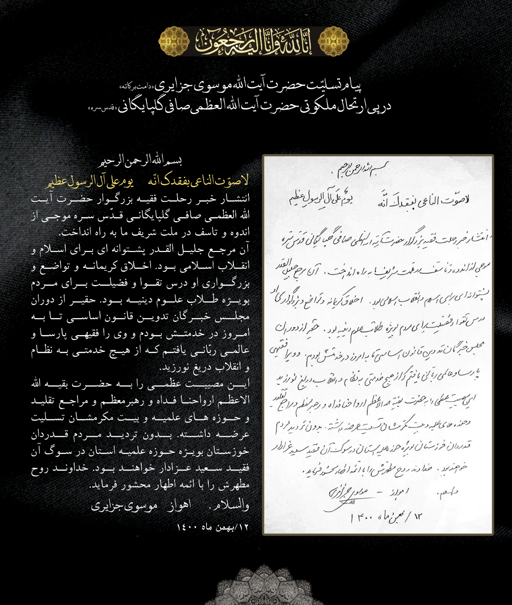 إنا لله وإنا إليه راجعون
پیام تسلیت حضرت آیت الله موسوی جزایری «دامت برکاته»
در پی ارتحال ملکوتی حضرت آیت الله العظمی صافی گلپایگانی «قدس سره»
بسم الله الرحمن الرحیم
لا صوّت الناعی بفقدک انّه یوم علی آل الرسول عظیم
انتشار خبر رحلت فقیه بزرگوار حضرت آیت
الله العظمی صافی گلپایگانی قدّس سره موجی از
اندوه و تاسف در ملت شریف ما به راه انداخت.
آن مرجع جلیل القدر پشتوانه ای برای اسلام و
انقلاب اسلامی بود. اخلاق کریمانه و تواضع و
بزرگواری او درس تقوا و فضیلت برای مردم
بویژه طلاب علوم دینیه بود. حقیر از دوران
مجلس خبرگان تدوین قانون اساسی تا به
امروز در خدمتش بودم و وی را فقیهی پارسا و
عالمی ربّانی یافتم که از هیچ خدمتی به نظام
و انقلاب دریغ نورزید.
این مصیبت عظمی را به حضرت بقیه الله
الاعظم ارواحنا فداه و رهبرمعظم و مراجع تقلید
و حوزه های علمیه و بیت مکرمشان تسلیت
عرضه داشته. بدون تردید مردم قدردان
خوزستان بویژه حوزه علمیه استان در سوگ آن
فقید سعید عزادار خواهند بود. خداوند روح
مطهرش را با ائمه اطهار محشور فرماید.
والسلام. اهواز موسوی جزایری
۱۲/بهمن ماه ۱۴۰۰
بسم الله الرحمن الرحیم
لا صوّت الناعی بفقدک انّه یومٌ علی آل الرسول عظیم
انتشار خبر رحلت فقیه بزرگوار حضرت آیة الله العظمی صافی گلپایگانی قدس سره
موجی از اندوه و تاسف در ملت شریف ما به راه انداخت. آن مرجع جلیل القدر
پشتوانه ای برای اسلام و انقلاب اسلامی بود. اخلاق کریمانه و تواضع و بزرگواری او
درس تقوا و فضیلت برای مردم بویژه طلاب علوم دینیه بود. حقیر از دوران
مجلس خبرگان تدوین قانون اساسی تا به امروز در خدمتش بودم. و وی را فقیهی
پارسا و عالمی ربانی یافتم که از هیچ خدمتی به نظام و انقلاب دریغ نورزید
این مصیبت عظمی را به حضرت بقیة الله الاعظم ارواحنا فداه و رهبر معظم و مراجع تقلید
و حوزه های علمیه و بیت مکرمشان تسلیت عرضه داشته. بدون تردید مردم
قدردان خوزستان بویژه حوزه علمیه استان در سوگ آن فقید سعید عزادار
خواهند بود. خداوند روح مطهرش را با ائمه اطهار محشور فرماید.
والسلام. اهواز - موسوی جزایری
۱۲ / بهمن ماه ۱۴۰۰